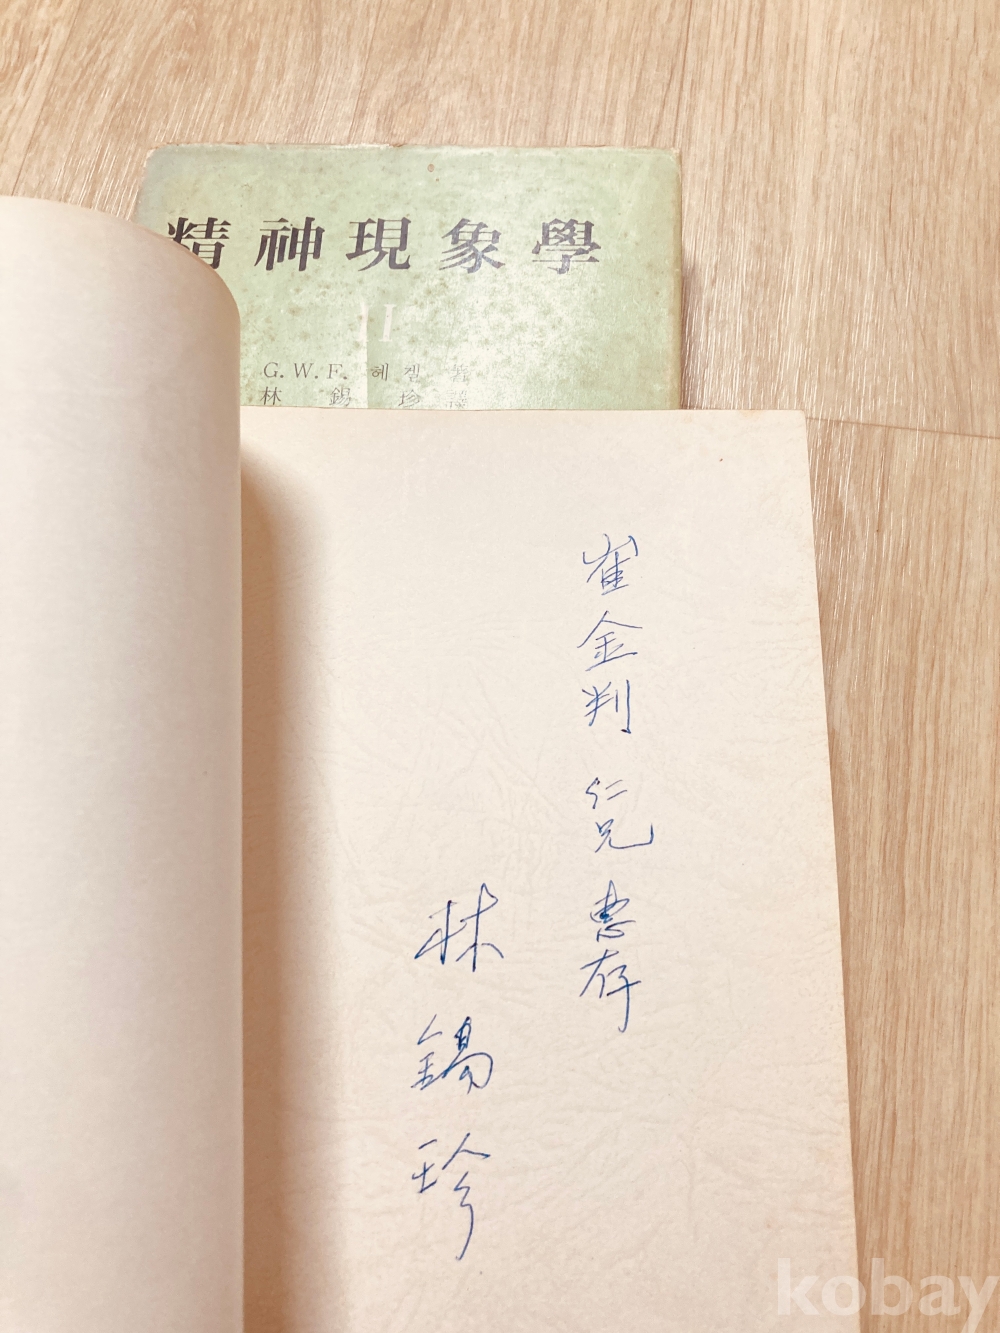 精神現象學
II
G.W.F. 헤겔 著
林錫珍 譯
崔金判 仁兄 惠存
林錫珍
kobay